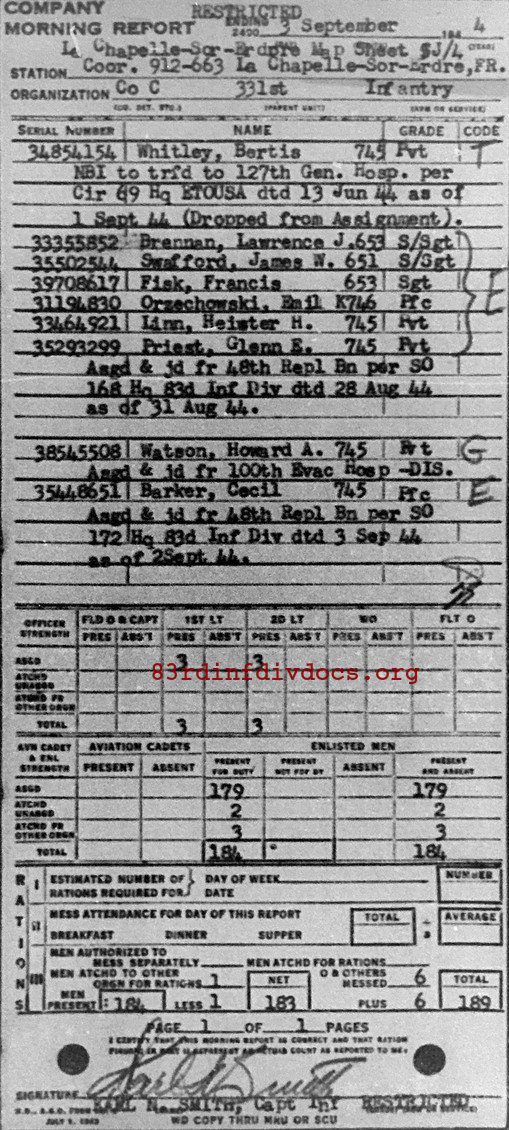 COMPANY
RESTRICTED
MORNING REPORT ENDING 2400 3 September 194 4
La Chapelle-Sor-Erdre Map Sheet 5J/4
STATION Coor. 912-663 La Chapelle-Sor-Erdre, FR.
ORGANIZATION Co C 331st Infantry
(CO. DET. ETC.) (PARENT UNIT) (ARM OR SERVICE)
SERIAL NUMBER NAME GRADE CODE
34854154 Whitley, Bertis 745 Pvt T
NBI to trfd to 127th Gen. Hosp. per
Cir 69 Hq ETOUSA dtd 13 Jun 44 as of
1 Sept 44 (Dropped from Assignment).
33355852 Brennan, Lawrence J. 653 S/Sgt
35502544 Swafford, James W. 651 S/Sgt
39708617 Fisk, Francis 653 Sgt E
31194830 Orzechowski, Emil K746 Pfc
33464921 Linn, Heister H. 745 Pvt
35293299 Priest, Glenn E. 745 Pvt
Asgd & jd fr 48th Repl Bn per SO
168 Hq 83d Inf Div dtd 28 Aug 44
as of 31 Aug 44.
38545508 Watson, Howard A. 745 Pvt G
Asgd & jd fr 100th Evac Hosp -DIS.
35448651 Barker, Cecil 745 Pfc E
Asgd & jd fr 48th Repl Bn per SO
172 Hq 83d Inf Div dtd 3 Sep 44
as of 2Sept 44.
OFFICER STRENGTH FLD O & CAPT 1ST LT 2D LT WO FLT O
PRES ABS'T PRES ABS'T PRES ABS'T PRES ABS'T PRES ABS'T
ASGD 3 3
83rdinfdivdocs.org
ATCHD UNASGD
ATCHD FR OTHER ORGN
TOTAL 3 3
AVN CADET & ENL STRENGTH AVIATION CADETS ENLISTED MEN
PRESENT ABSENT PRESENT FOR DUTY PRESENT NOT FOR DY ABSENT PRESENT AND ABSENT
ASGD 179 179
ATCHD UNASGD 2 2
ATCHD FR OTHER ORGN 3 3
TOTAL 184 184
RATIONS
I ESTIMATED NUMBER OF } DAY OF WEEK NUMBER
RATIONS REQUIRED FOR } DATE
II MESS ATTENDANCE FOR DAY OF THIS REPORT TOTAL ÷ 3 AVERAGE
BREAKFAST DINNER SUPPER
III MEN AUTHORIZED TO MESS SEPARATELY MEN ATCHD FOR RATIONS
MEN ATCHD TO OTHER ORGN FOR RATIONS 1 NET O & OTHERS MESSED 6 TOTAL
MEN PRESENT: 184 LESS 1 183 PLUS 6 189
PAGE 1 OF 1 PAGES
I CERTIFY THAT THIS MORNING REPORT IS CORRECT AND THAT RATION
FIGURE IN PART III REPRESENT ACTUAL COUNT AS REPORTED TO ME:
Karl N Smith
SIGNATURE KARL N. SMITH, Capt Inf RESTRICTED
W.D., A.G.O. FORM
JULY 1, 1943 WD COPY THRU MRU OR SCU